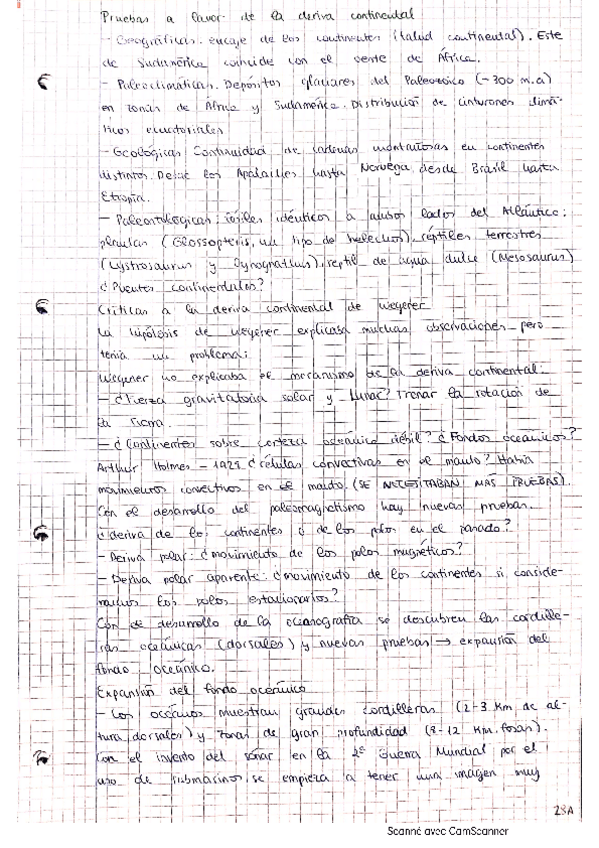 Pruebas a favor de la deriva continental
- Geográficas. encaje de los continentes (talud continental). Este
de Sudamérica coincide con el oeste de África.
- Paleoclimáticas. Depósitos glaciares del Paleozoico (~300 m.a)
en zonas de África y Sudamérica. Distribución de cinturones climá-
ticos ecuatoriales
- Geológicas Continuidad de cadenas montañosas en continentes
distintos. Desde los Apalaches hasta Noruega, desde Brasil hasta
Etiopía.
- Paleontológicas: fósiles idénticos a ambos lados del Atlántico:
plantas (Glossopteris, un tipo de helechos), réptiles terrestres
(Lystrosaurus y Cynognathus), reptil de agua dulce (Mesosaurus)
¿Puentes continentales?
Críticas a la deriva continental de Wegener
La hipótesis de Wegener explicaba muchas observaciones pero
tenía un problema:
Wegener no explicaba el mecanismo de la deriva continental:
- ¿Fuerza gravitatoria solar y Lunar? Frenar la rotación de
la Tierra.
- ¿Continentes sobre corteza oceánica débil? ¿Fondos oceánicos?
Arthur Holmes - 192 ¿células convectivas en el manto? Había
movimientos convectivos en el manto. (SE NECESITABAN MÁS PRUEBAS).
Con el desarrollo del paleomagnetismo hay nuevas pruebas.
¿deriva de los continentes o de los polos en el pasado?
- Deriva polar: ¿movimiento de los polos magnéticos?
- Deriva polar aparente: ¿movimiento de los continentes si conside-
ramos los polos estacionarios?
Con de desarrollo de la oceanografía se descubren las cordille-
ras oceánicas (dorsales) y nuevas pruebas → expansión del
fondo oceánico.
Expansión del fondo oceánico
- Los océanos muestran grandes cordilleras (2-3 Km de al-
tura, dorsales) y zonas de gran profundidad (8-12 Km. fosas).
Con el invento del sónar en la 2ª Guerra Mundial por el
uso de submarinos se empieza a tener una imagen muy
28A
Scanné avec CamScanner